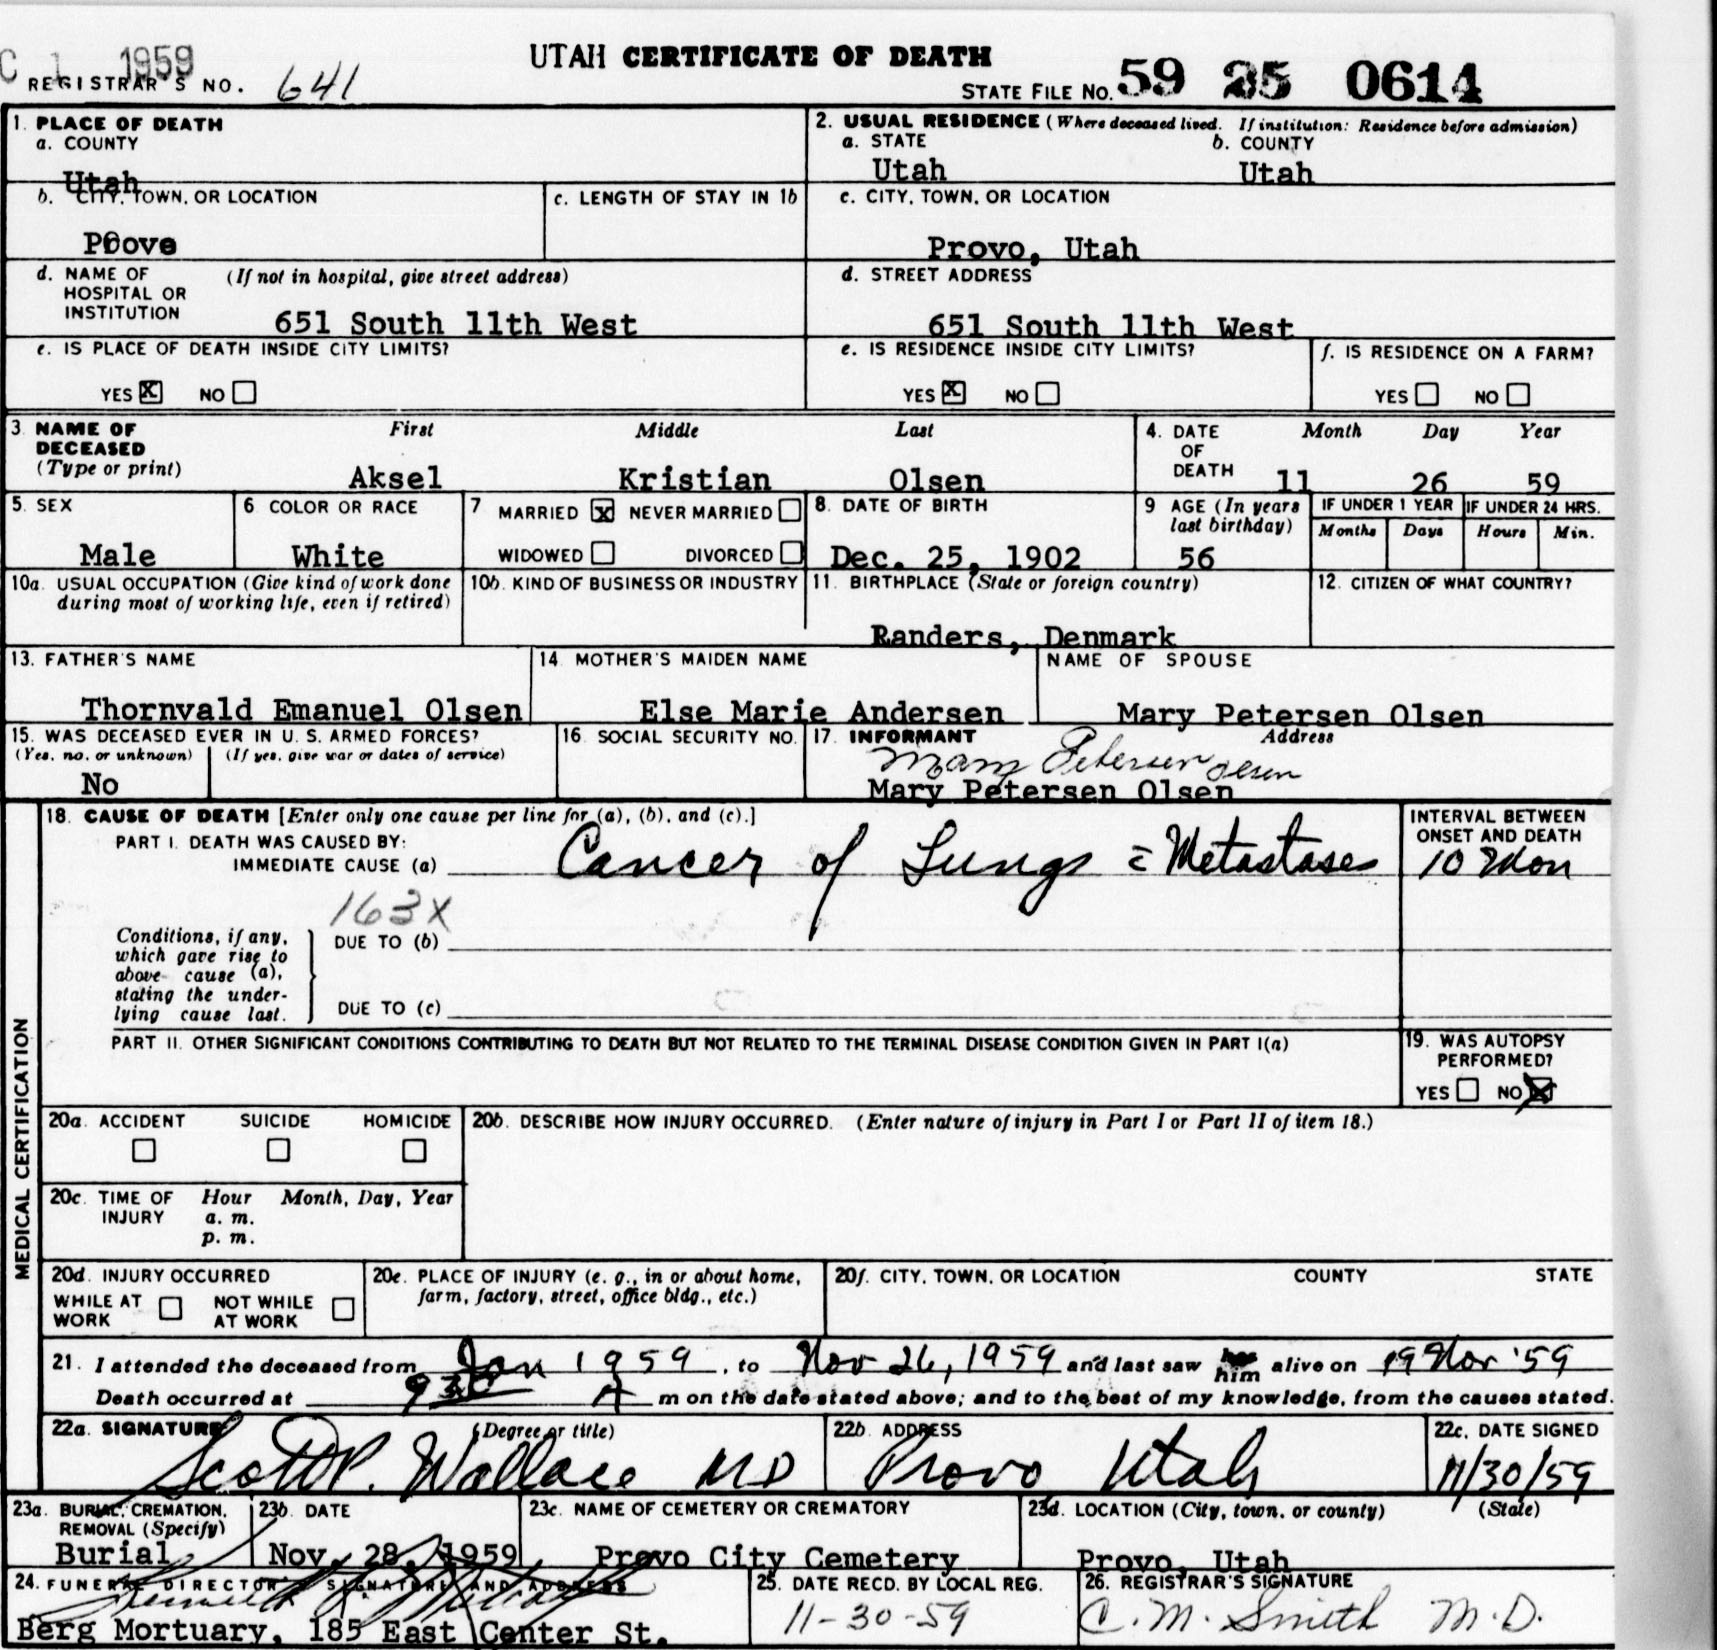 C 1 1959
UTAH CERTIFICATE OF DEATH
REGISTRAR'S NO. 641
STATE FILE NO. 59 25 0614
1. PLACE OF DEATH
a. COUNTY
Utah
2. USUAL RESIDENCE (Where deceased lived. If institution: Residence before admission)
a. STATE b. COUNTY
Utah Utah
b. CITY, TOWN, OR LOCATION c. LENGTH OF STAY IN 1b
Provo
c. CITY, TOWN, OR LOCATION
Provo, Utah
d. NAME OF HOSPITAL OR INSTITUTION (If not in hospital, give street address)
651 South 11th West
d. STREET ADDRESS
651 South 11th West
e. IS PLACE OF DEATH INSIDE CITY LIMITS?
YES X NO
e. IS RESIDENCE INSIDE CITY LIMITS?
YES X NO
f. IS RESIDENCE ON A FARM?
YES NO
3. NAME OF DECEASED (Type or print) First Middle Last
Aksel Kristian Olsen
4. DATE OF DEATH Month Day Year
11 26 59
5. SEX
Male
6 COLOR OR RACE
White
7 MARRIED X NEVER MARRIED
WIDOWED DIVORCED
8. DATE OF BIRTH
Dec. 25, 1902
9 AGE (In years last birthday)
56
IF UNDER 1 YEAR IF UNDER 24 HRS.
Months Days Hours Min.
10a. USUAL OCCUPATION (Give kind of work done during most of working life, even if retired)
10b. KIND OF BUSINESS OR INDUSTRY
11. BIRTHPLACE (State or foreign country)
Randers, Denmark
12. CITIZEN OF WHAT COUNTRY?
13. FATHER'S NAME
Thornvald Emanuel Olsen
14 MOTHER'S MAIDEN NAME
Else Marie Andersen
NAME OF SPOUSE
Mary Petersen Olsen
15. WAS DECEASED EVER IN U. S. ARMED FORCES?
(Yes, no, or unknown) (If yes, give war or dates of service)
No
16. SOCIAL SECURITY NO.
17. INFORMANT Address
Mary Petersen Olsen
Mary Petersen Olsen
18. CAUSE OF DEATH [Enter only one cause per line for (a), (b), and (c).]
PART I. DEATH WAS CAUSED BY:
IMMEDIATE CAUSE (a) Cancer of Lungs c Metastases
INTERVAL BETWEEN ONSET AND DEATH
10 Mon
163X
Conditions, if any, which gave rise to above cause (a), stating the underlying cause last.
DUE TO (b)
DUE TO (c)
PART II. OTHER SIGNIFICANT CONDITIONS CONTRIBUTING TO DEATH BUT NOT RELATED TO THE TERMINAL DISEASE CONDITION GIVEN IN PART I(a)
19. WAS AUTOPSY PERFORMED?
YES NO X
MEDICAL CERTIFICATION
20a. ACCIDENT SUICIDE HOMICIDE
20b. DESCRIBE HOW INJURY OCCURRED. (Enter nature of injury in Part I or Part II of item 18.)
20c. TIME OF INJURY Hour Month, Day, Year
a. m.
p. m.
20d. INJURY OCCURRED
WHILE AT WORK NOT WHILE AT WORK
20e. PLACE OF INJURY (e. g., in or about home, farm, factory, street, office bldg., etc.)
20f. CITY, TOWN, OR LOCATION COUNTY STATE
21. I attended the deceased from Jan 1959, to Nov 26, 1959 and last saw her him alive on 19 Nov '59
Death occurred at 9 30 A m on the date stated above; and to the best of my knowledge, from the causes stated.
22a. SIGNATURE (Degree or title)
Scott P. Wallace MD
22b. ADDRESS
Provo Utah
22c. DATE SIGNED
11/30/59
23a. BURIAL, CREMATION, REMOVAL (Specify)
Burial
23b. DATE
Nov. 28, 1959
23c. NAME OF CEMETERY OR CREMATORY
Provo City Cemetery
23d. LOCATION (City, town, or county) (State)
Provo, Utah
24. FUNERAL DIRECTOR'S SIGNATURE AND ADDRESS
Berg Mortuary, 185 East Center St.
25. DATE RECD. BY LOCAL REG.
11-30-59
26. REGISTRAR'S SIGNATURE
C. M. Smith M.D.